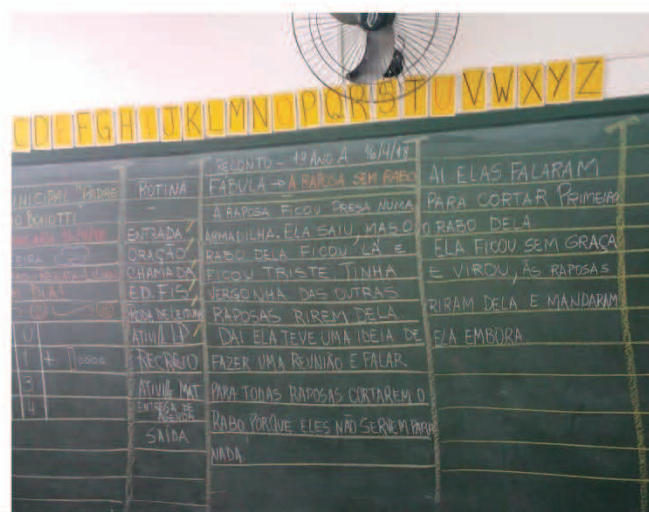 C D E F G H I J K L M N O P Q R S T U V W X Y Z
NICIPAL "PADRE
ROTINA
ENTRADA
ORAÇÃO
CHAMADA
ED. FIS
RODA DE LEITURA
ATIVID. LP
RECREIO
ATIVID. MAT
ENTREGA DE
AGENDA
SAÍDA
0
1 +
3
4
RECONTO - 1º ANO A 16/4/18
FÁBULA → A RAPOSA SEM RABO
A RAPOSA FICOU PRESA NUMA
ARMADILHA. ELA SAIU, MAS O
RABO DELA FICOU LÁ E
FICOU TRISTE. TINHA
VERGONHA DAS OUTRAS
RAPOSAS RIREM DELA.
DAÍ ELA TEVE UMA IDEIA DE
FAZER UMA REUNIÃO E FALAR
PARA TODAS RAPOSAS CORTAREM O
RABO PORQUE ELES NÃO SERVEM PARA
NADA.
AÍ ELAS FALARAM
PARA CORTAR PRIMEIRO
O RABO DELA
ELA FICOU SEM GRAÇA
E VIROU, AS RAPOSAS
RIRAM DELA E MANDARAM
ELA EMBORA